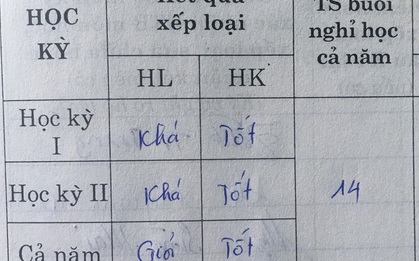 HỌC KỲ
Kết quả xếp loại
TS buổi nghỉ học cả năm
HL
HK
Học kỳ I
Khá
Tốt
Học kỳ II
Khá
Tốt
14
Cả năm
Giỏi
Tốt